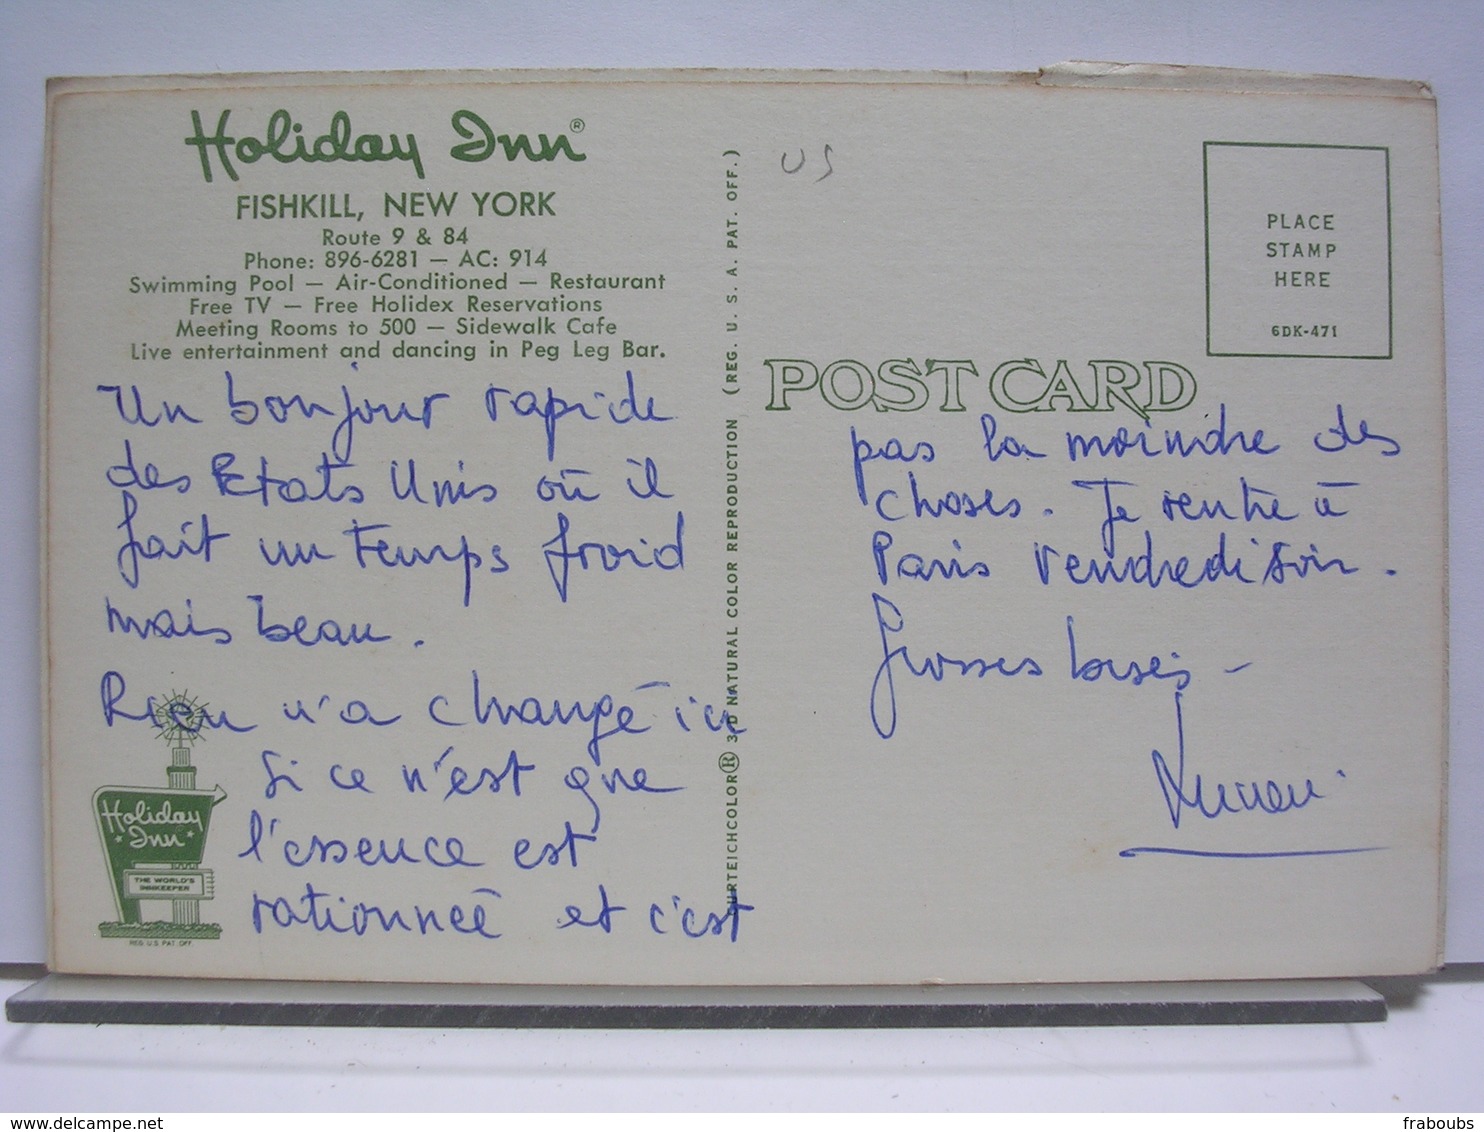 Holiday Inn®
FISHKILL, NEW YORK
Route 9 & 84
Phone: 896-6281 — AC: 914
Swimming Pool — Air-Conditioned — Restaurant
Free TV — Free Holidex Reservations
Meeting Rooms to 500 — Sidewalk Cafe
Live entertainment and dancing in Peg Leg Bar.
Un bonjour rapide
des Etats Unis où il
fait un temps froid
mais beau.
Rien n'a changé ici
si ce n'est que
l'essence est
rationnée et c'est
Holiday
Inn
THE WORLD'S
INNKEEPER
REG U.S PAT OFF.
CURTEICHCOLOR® 3-D NATURAL COLOR REPRODUCTION (REG. U. S. A. PAT. OFF.)
US
PLACE
STAMP
HERE
6DK-471
POST CARD
pas la moindre des
choses. Je rentre à
Paris vendredi soir.
Grosses bises -
delcampe.net
fraboubs